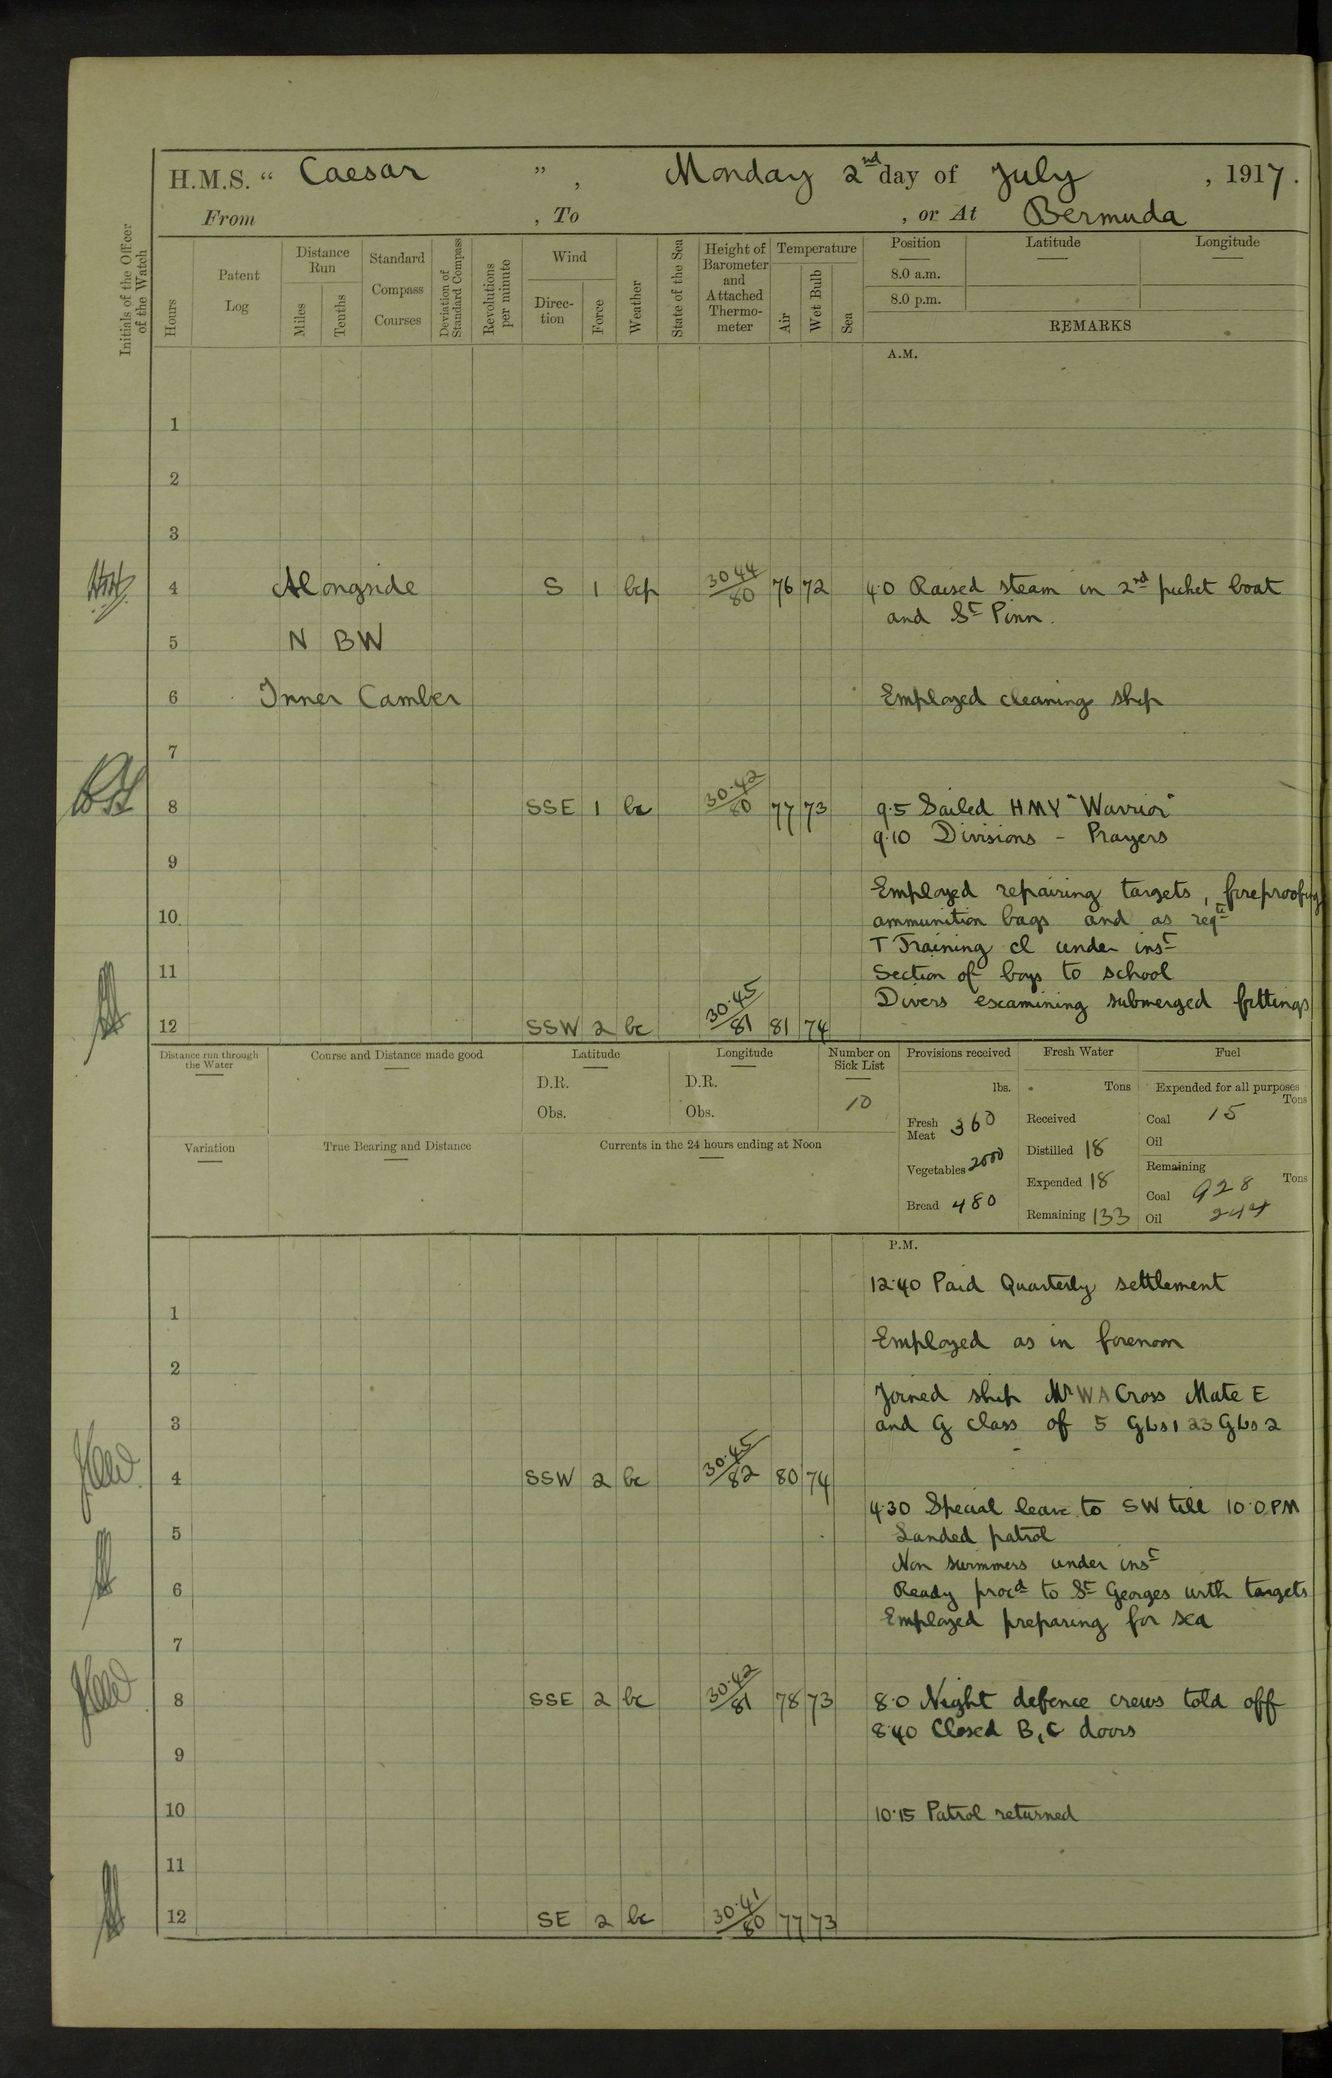 H.M.S. “ Caesar ” , Monday 2nd day of July , 1917.
From , To , or At Bermuda
Initials of the Officer of the Watch
Hours
Patent Log
Distance Run
Miles
Tenths
Standard Compass Courses
Deviation of Standard Compass
Revolutions per minute
Wind
Direc-tion
Force
Weather
State of the Sea
Height of Barometer and Attached Thermo-meter
Temperature
Air
Wet Bulb
Sea
Position Latitude Longitude
8.0 a.m.
8.0 p.m.
REMARKS
A.M.
1
2
3
4 Alongside S 1 bcp 30.44/80 76 72 4.0 Raised steam in 2nd picket boat
and St Pinn.
5 N BW
6 Inner Camber Employed cleaning ship
7
8 SSE 1 bc 30.42/80 77 73 9.5 Sailed HMY "Warrior"
9.10 Divisions - Prayers
9
Employed repairing targets, fireproofing
10 ammunition bags and as reqd
T Training cl under inst
11 Section of boys to school
Divers examining submerged fittings
12 SSW 2 bc 30.45/81 81 74
Distance run through the Water
Course and Distance made good
Latitude
D.R.
Obs.
Longitude
D.R.
Obs.
Number on Sick List
10
Provisions received
lbs.
Fresh Meat 360
Vegetables 2000
Bread 480
Fresh Water
Tons
Received
Distilled 18
Expended 18
Remaining 133
Fuel
Expended for all purposes
Tons
Coal 15
Oil
Remaining
Tons
Coal 928
Oil 244
Variation
True Bearing and Distance
Currents in the 24 hours ending at Noon
P.M.
12.40 Paid Quarterly settlement
1
Employed as in forenoon
2
Joined ship Mr WA Cross Mate E
3 and G class of 5 GLs1 23 GLs 2
4 SSW 2 bc 30.45/82 80 74
4.30 Special leave to SW till 10.0 PM
5 Landed patrol
Non swimmers under inst
6 Ready procd to St Georges with targets
Employed preparing for sea
7
8 SSE 2 bc 30.42/81 78 73 8.0 Night defence crews told off
8.40 Closed B, C doors
9
10 10.15 Patrol returned
11
12 SE 2 bc 30.41/80 77 73